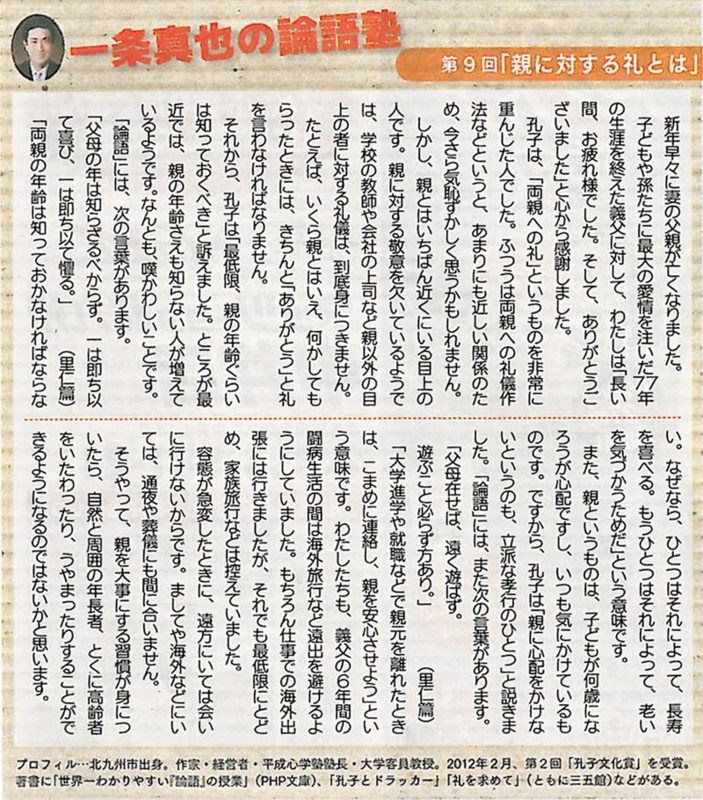 一条真也の論語塾
第9回「親に対する礼とは」
新年早々に妻の父親が亡くなりました。
子どもや孫たちに最大の愛情を注いだ77年
の生涯を終えた義父に対して、わたしは「長い
間、お疲れ様でした。そして、ありがとうご
ざいました」と心から感謝しました。
孔子は、「両親への礼」というものを非常に
重んじた人でした。ふつうは両親への礼儀作
法などというと、あまりにも近しい関係のた
め、今さら気恥ずかしく思うかもしれません。
しかし、親とはいちばん近くにいる目上の
人です。親に対する敬意を欠いているようで
は、学校の教師や会社の上司など親以外の目
上の者に対する礼儀は、到底身につきません。
たとえば、いくら親とはいえ、何かしても
らったときには、きちんと「ありがとう」と礼
を言わなければなりません。
それから、孔子は「最低限、親の年齢ぐらい
は知っておくべき」と訴えました。ところが最
近では、親の年齢さえも知らない人が増えて
いるようです。なんとも、嘆かわしいことです。
『論語』には、次の言葉があります。
「父母の年は知らざるべからず。一は即ち以
て喜び、一は即ち以て懼る。」　（里仁篇）
「両親の年齢は知っておかなければならな
い。なぜなら、ひとつはそれによって、長寿
を喜べる。もうひとつはそれによって、老い
を気づかうためだ」という意味です。
また、親というものは、子どもが何歳にな
ろうが心配ですし、いつも気にかけているも
のです。ですから、孔子は「親に心配をかけな
いというのも、立派な孝行のひとつ」と説きま
した。『論語』には、また次の言葉があります。
「父母在せば、遠く遊ばず。
遊ぶこと必らず方あり。」　（里仁篇）
「大学進学や就職などで親元を離れたとき
は、こまめに連絡し、親を安心させよう」とい
う意味です。わたしたちも、義父の6年間の
闘病生活の間は海外旅行など遠出を避けるよ
うにしていました。もちろん仕事での海外出
張には行きましたが、それでも最低限にとど
め、家族旅行などは控えていました。
容態が急変したときに、遠方にいては会い
に行けないからです。ましてや海外などにい
ては、通夜や葬儀にも間に合いません。
そうやって、親を大事にする習慣が身につ
いたら、自然と周囲の年長者、とくに高齢者
をいたわったり、うやまったりすることがで
きるようになるのではないかと思います。
プロフィル…北九州市出身。作家・経営者・平成心学塾塾長・大学客員教授。2012年2月、第2回「孔子文化賞」を受賞。
著書に「世界一わかりやすい『論語』の授業」（PHP文庫）、「孔子とドラッカー」「礼を求めて」（ともに三五館）などがある。